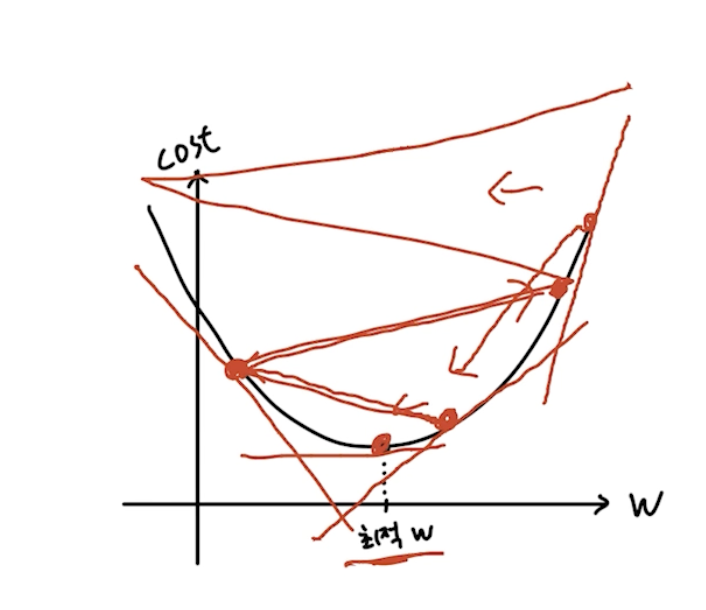 cost
W
최적 W